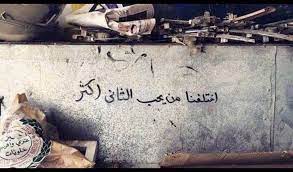 اختلفنا من يحب الثاني اكثر